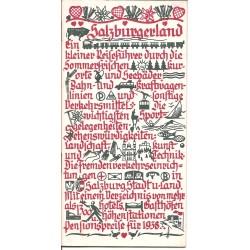 Salzburgerland
Ein
kleiner Reiseführer durch die
Sommerfrischen Kur-
orte und Seebäder
Bahn- und Kraftwagen-
linien und sonstige
Verkehrsmittel: Die
wichtigsten Sport-
gelegenheiten
Sehenswürdigkeiten:
landschaft kunst
und Technik
Die fremdenverkehrseinrich-
tungen in
Salzburg Stadt u. land.
Mit einem Verzeichnis von mehr
als hotels, Gasthöfen
u. höhenstationen
Pensionspreise für 1938.